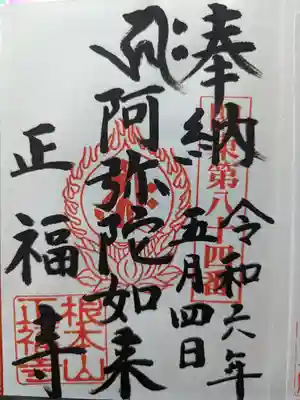 奉納
令和六年
五月四日
阿弥陀如来
正福寺
根本山
正福寺